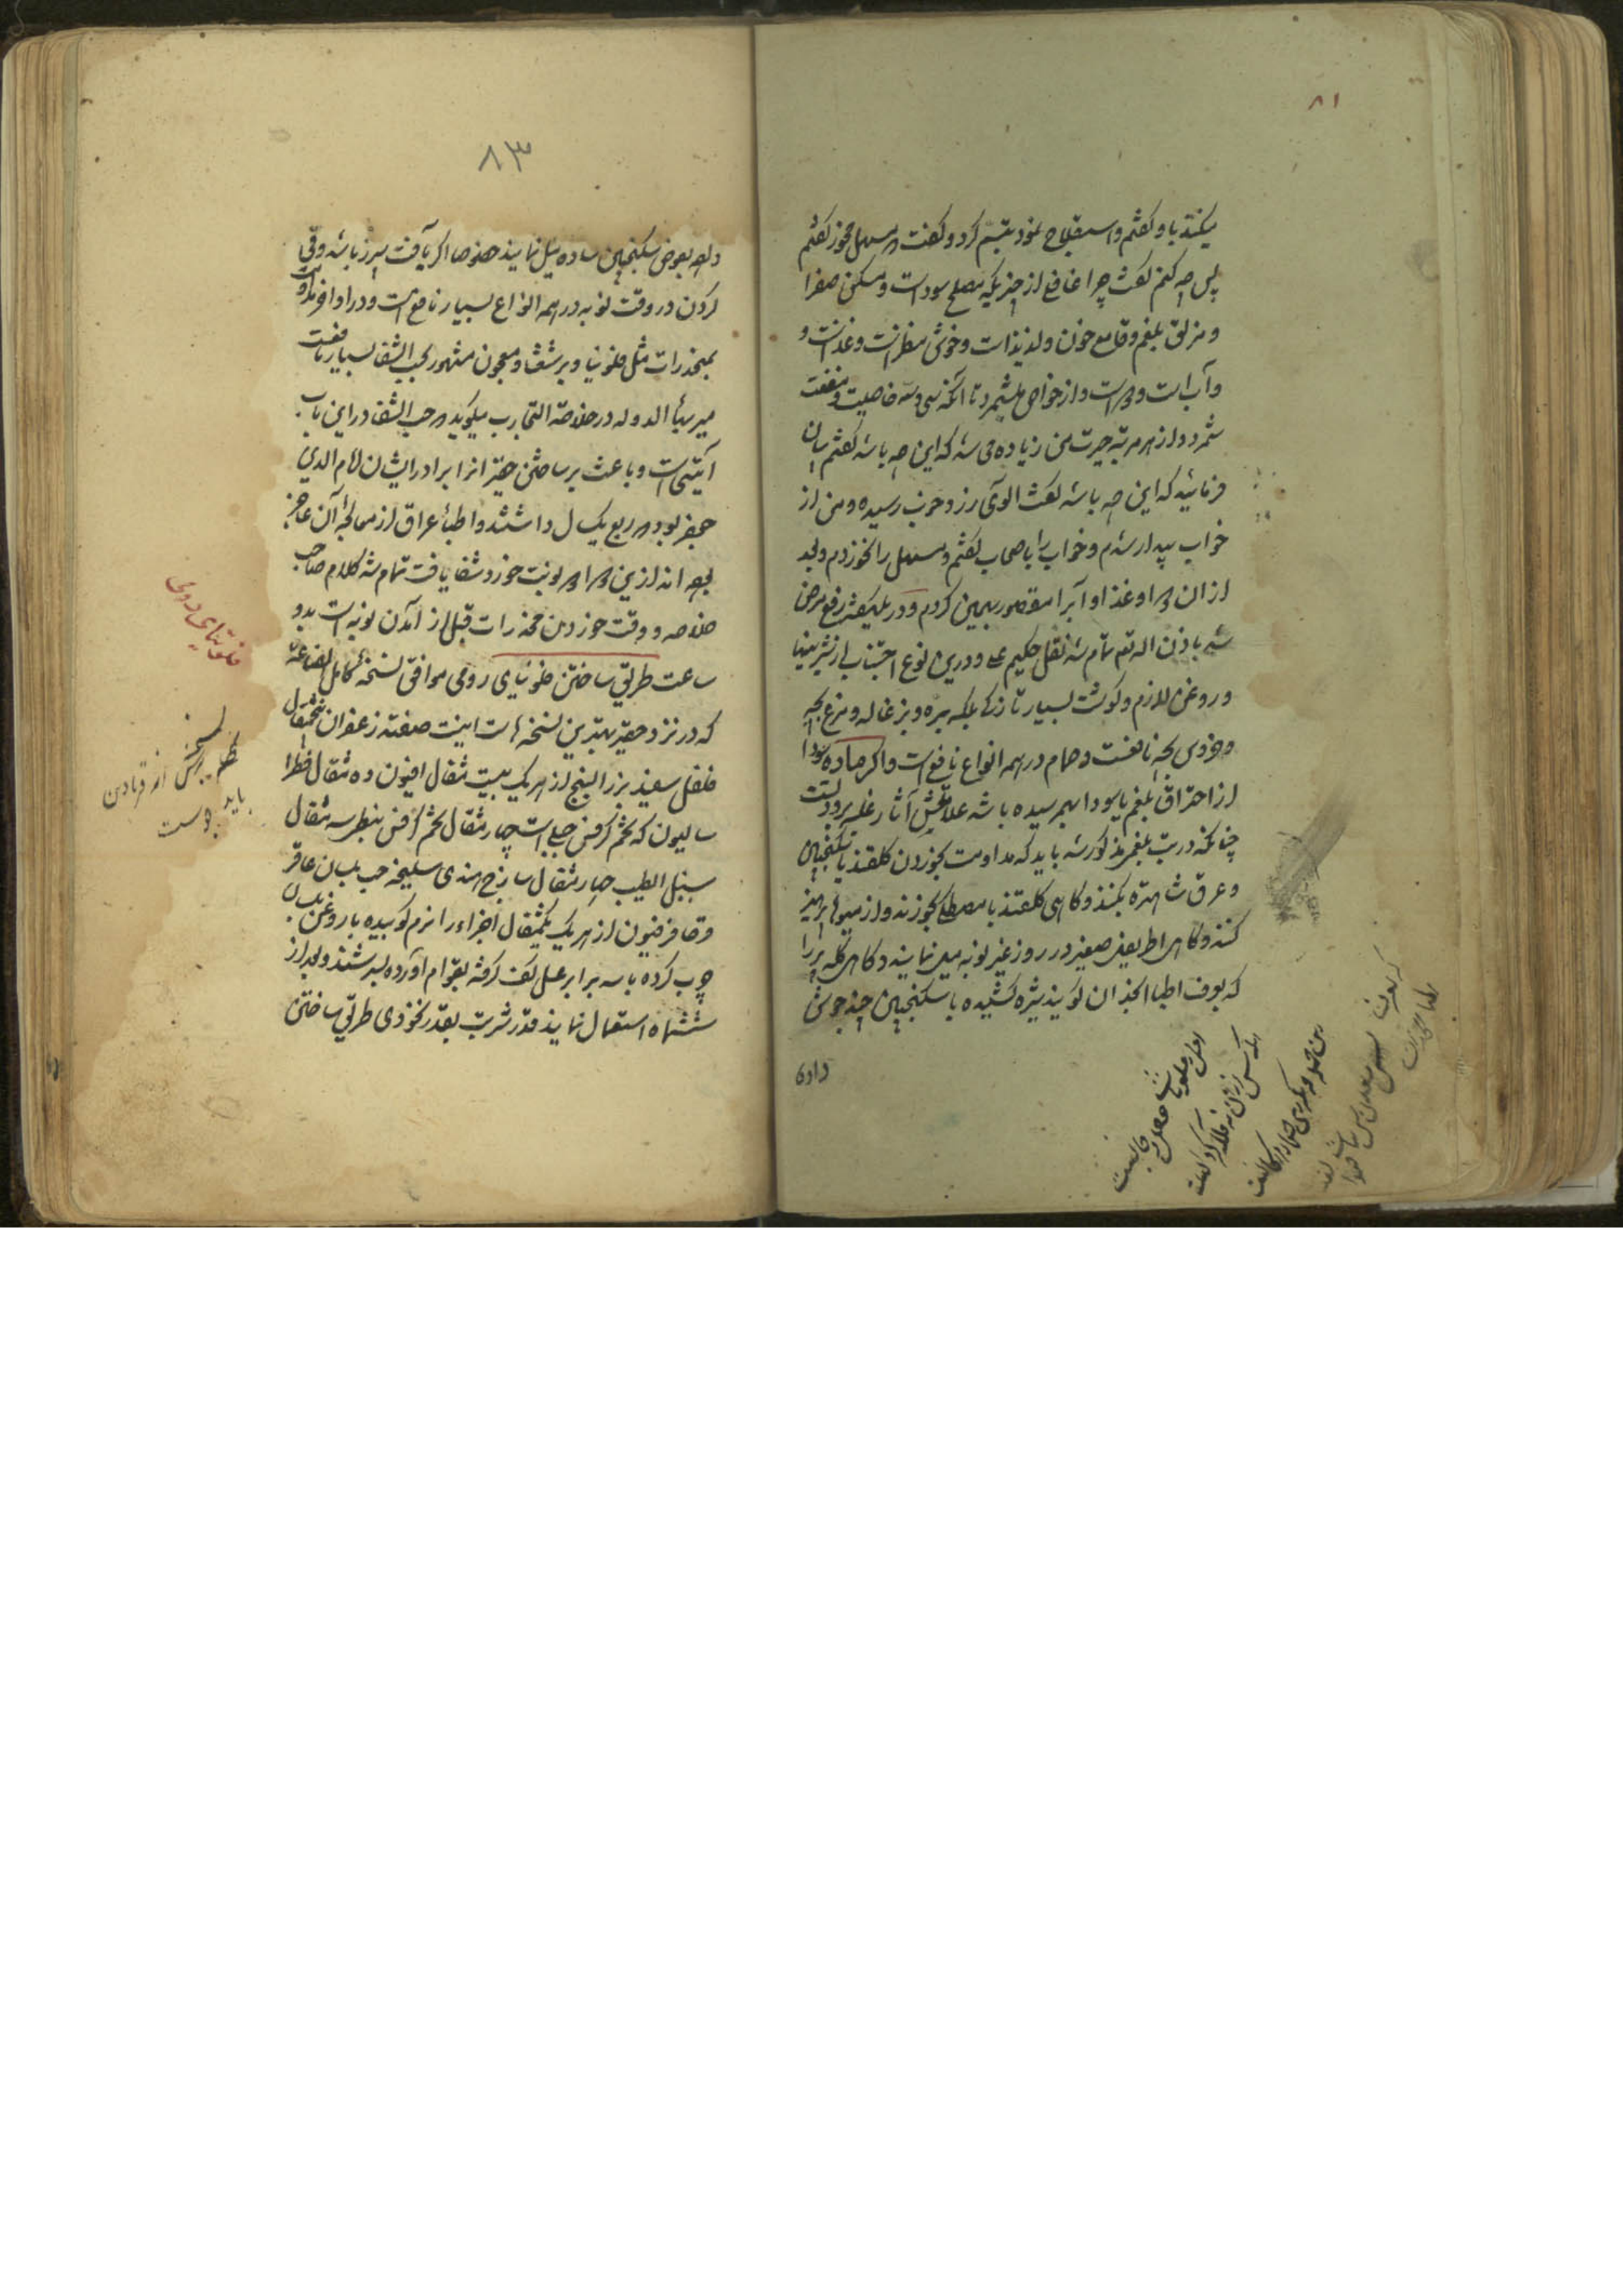 ۸۱
میکنند باو گفتم و استعلاج نمود تبسم کرد و گفت مسهل مخور گفتم
پس چه کنم گفت چرا غافلی از چیزیکه مصلح سوداست و مسکن صفرا
و مزلق بلغم و قامع خون و لذیذ است و خوش منظر است و غذاست و
و آب است و دواست و از خواص میشمرد تا آنکه سی و سه خاصیت و منفعت
شمرد و از هر مرتبه حیرت من زیاده می شد که این چه باشد گفتم بیان
فرمائید که این چه باشد گفت آلوی زرد و خوب رسیده و من از
خواب بیدار شدم و خواب را باصحاب گفتم و مسهل را نخوردم و بعد
از ان دوا و غذا و آب را مقصور بهمین کردم و در یک هفته رفع مرض
شد باذن اله تع تمام شد نقل حکیم علی و درین نوع اجتناب از شیرینیها
و روغن لازم و گوشت بسیار نازک بلکه بره و بزغاله و مرغ بچه
و خروس بچه نافعست و حمام در همه انواع نافع است و اگر ماده سودا
از احتراق بلغم یا سودا بهم رسیده باشد علامتش آثار غلبه برودتست
چنانکه در تب بلغمی مذکور شد باید که مداومت بخوردن گلقند با سکنجبین
و عرق شاهتره بکنند و کاهی گلقند با مصطکی بخورند و از میوها پرهیز
کنند و کاهی اطریفل صغیر در روز غیر نوبه میل نمایند و کاهی کله بز را
که بعرف اطبا انجذان گویند شیره کشیده با سکنجبین چند جوش
داده
۸۳
دهد بعوض سکنجبین ساده میل نمایند خصوصا اگر با آفت سپرز باشد و قی
کردن در وقت نوبه در همه انواع بسیار نافع است و در اواخر مداومت
بمخدرات مثل فلونیا و برشعثا و معجون مشهور بحب الشفا بسیار نافعست
میر بهاء الدوله در خلاصة التجارب میگوید که حب الشفا در این باب
آیتی است و باعث بر ساختن حقیر انرا برادر ایشان امام الدین
جعفر بود که ربع یک سال داشتند و اطباء عراق از معالجه آن عاجز
بوده اند ازین دوا دو نوبت خورد شفا یافت تمام شد کلام صاحب
خلاصه و وقت خوردن مخدرات قبل از آمدن نوبه است بدو
ساعت طریق ساختن فلونیای رومی موافق نسخه کامل الصناعه
که در نزد حقیر بهترین نسخه هاست اینست صفته زعفران پنجمثقال
فلفل سفید بزر البنج از هر یک بیست مثقال افیون ده مثقال فطرا
سالیون که تخم کرفس جبلی است چهار مثقال تخم کرفس نبطی سه مثقال
سنبل الطیب چهار مثقال ساذج هندی سلیخه حب بلسان عاقر
قرحا فرفیون از هر یک یکمثقال اجزاء را نرم کوبیده با روغن بلسان
چرب کرده با سه برابر عسل کف گرفته بقوام آورده بسرشند و بعد از
ششماه استعمال نمایند قدر شربت بقدر نخودی طریق ساختن
فلونیای رومی